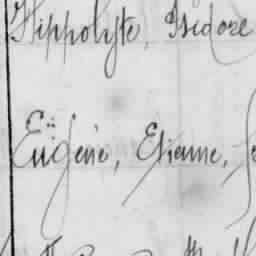 Hippolyte, Isidore
Eugène, Etienne,